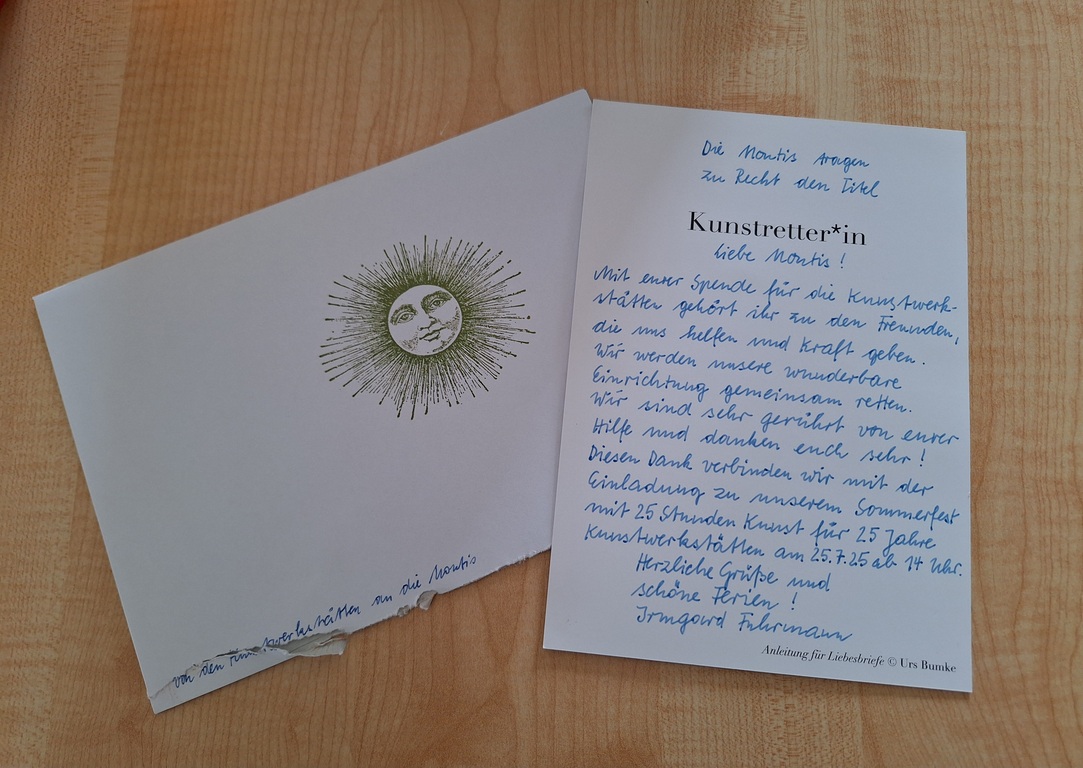 von den Kunstwerkstätten an die Montis
Die Montis tragen
zu Recht den Titel
Kunstretter*in
Liebe Montis !
Mit eurer Spende für die Kunstwerk-
stätten gehört ihr zu den Freunden,
die uns helfen und Kraft geben.
Wir werden unsere wunderbare
Einrichtung gemeinsam retten.
Wir sind sehr gerührt von eurer
Hilfe und danken euch sehr !
Diesen Dank verbinden wir mit der
Einladung zu unserem Sommerfest
mit 25 Stunden Kunst für 25 Jahre
Kunstwerkstätten am 25.7.25 ab 14 Uhr.
Herzliche Grüße und
schöne Ferien !
Irmgard Fuhrmann
Anleitung für Liebesbriefe © Urs Bumke